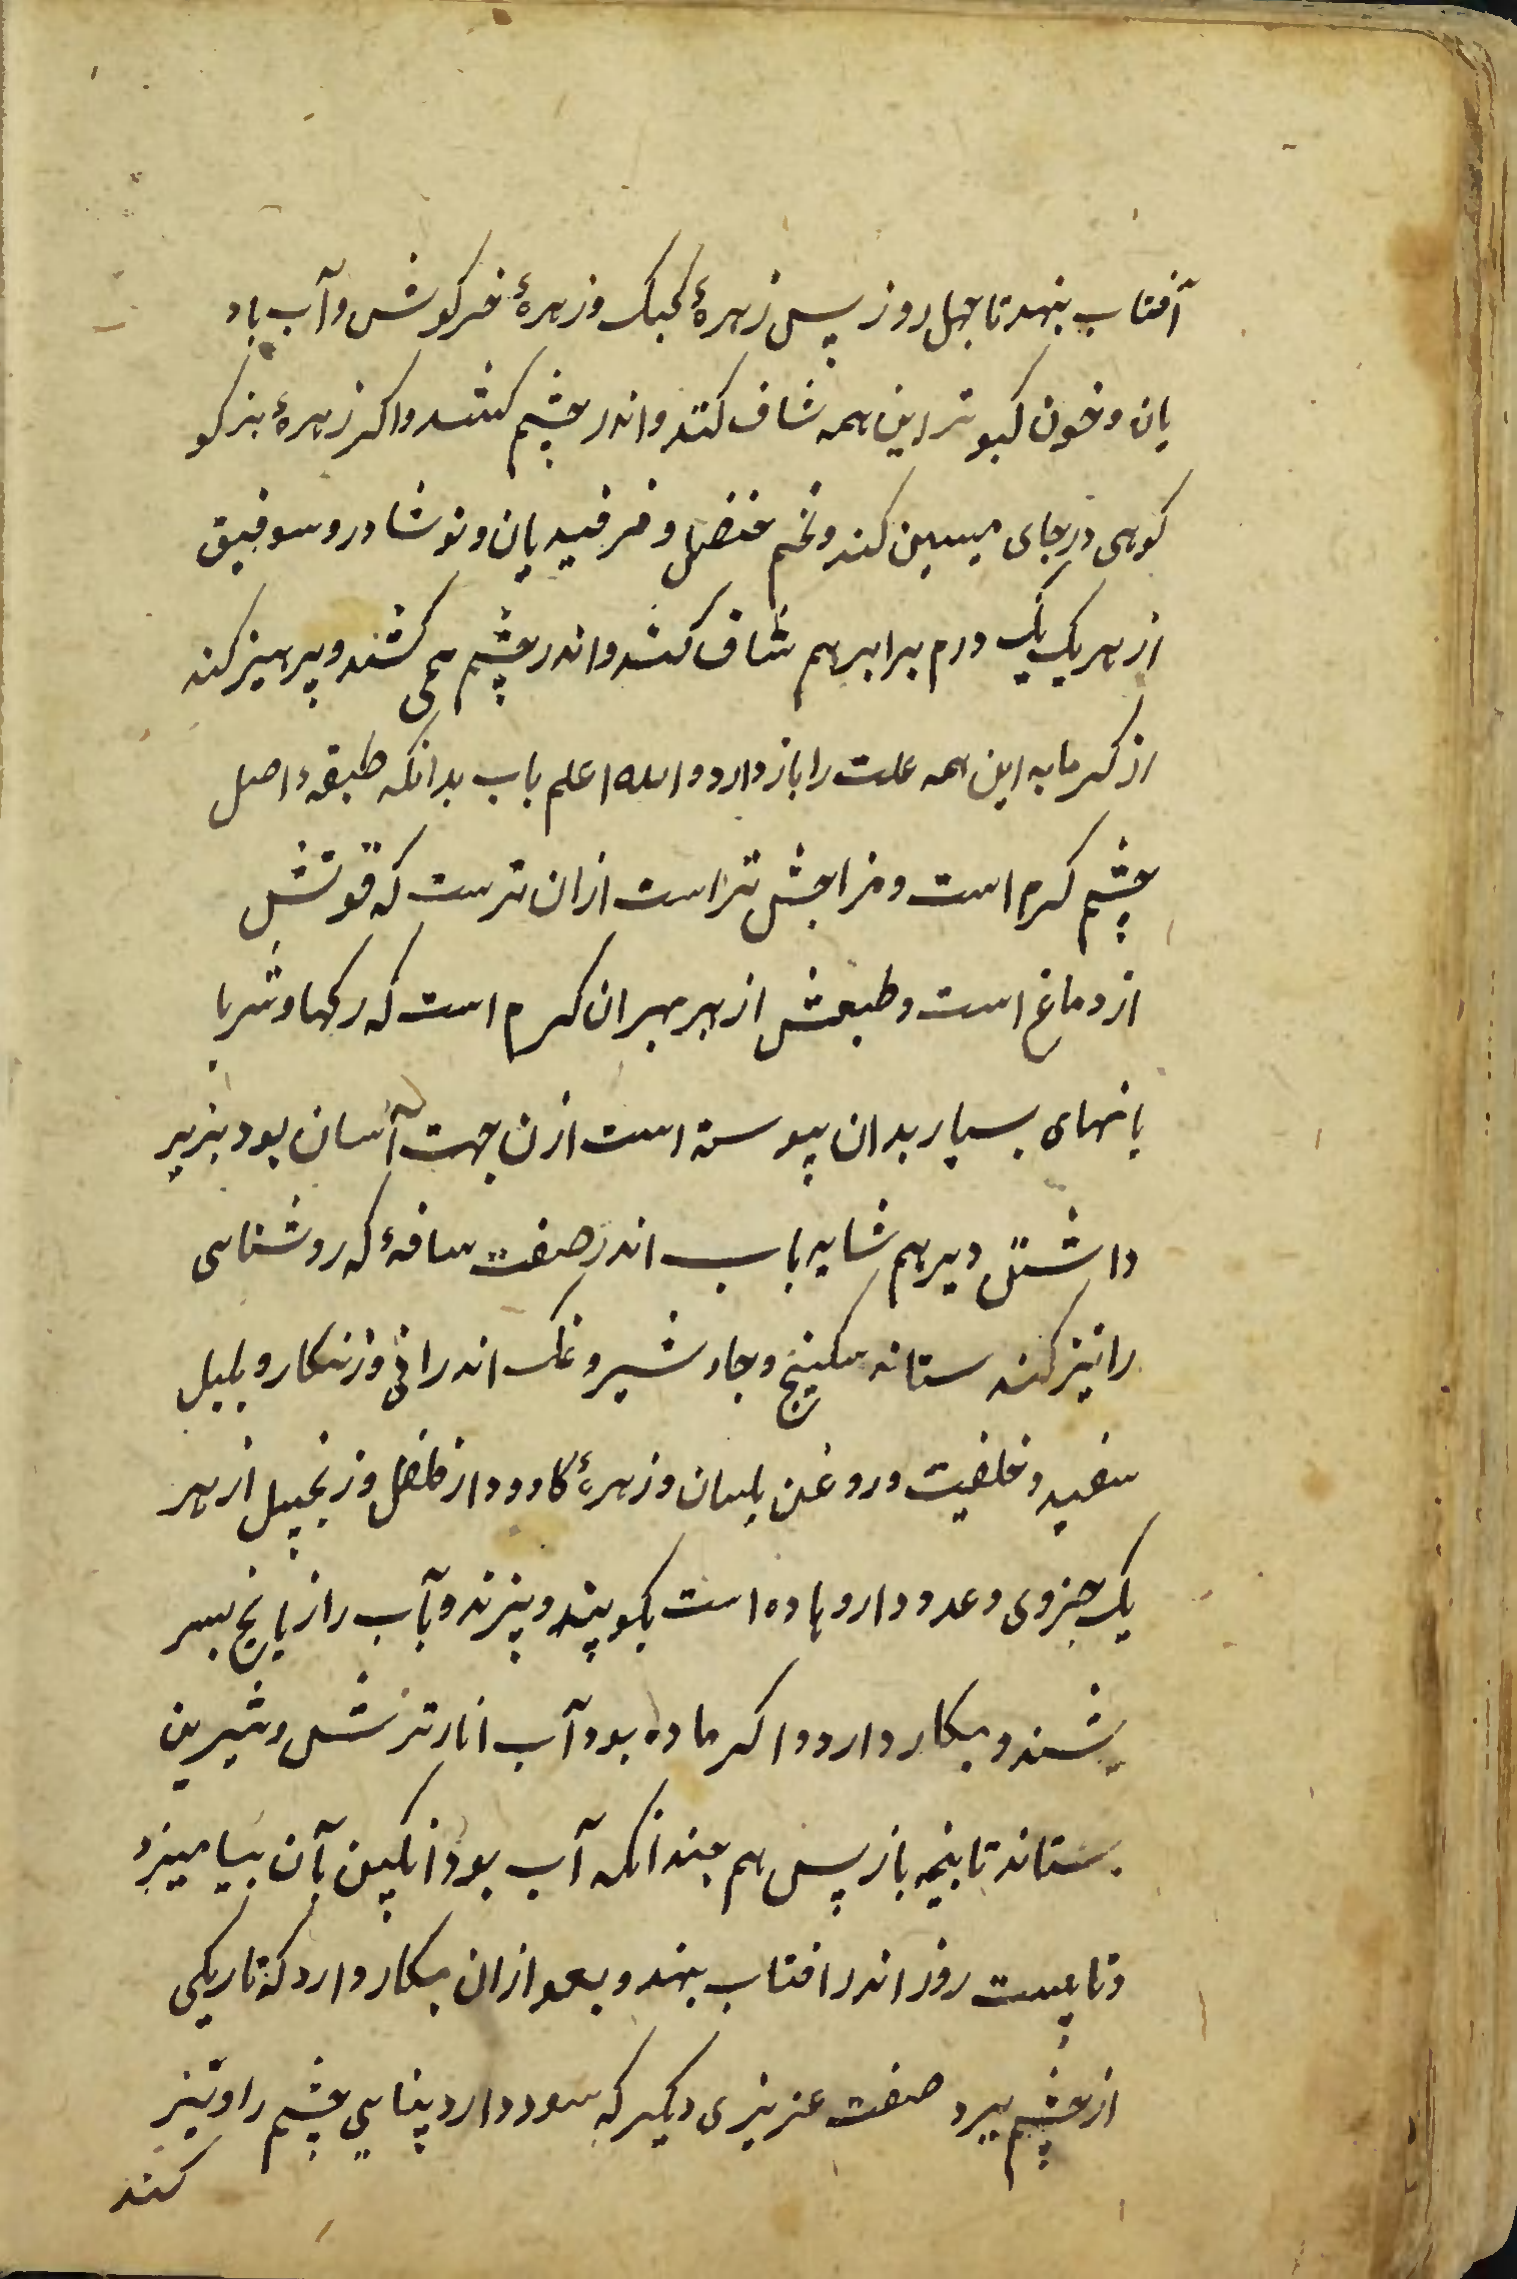 آفتاب بنهد تا چهل روز پس زهرهٔ کبک وزهرهٔ خرکوش وآب باد
یان وخون کبوتر این همه شاف کنند واندر چشم کشند واکر زهرهٔ بز کو
کوهی در جای مسین کند وتخم حنضل وفرفیدیان ونوشادر وسوفیق
از هر یک یک درم برابر هم شاف کنند واندر چشم همی کشند وپرهیز کند
از کرمابه این همه علت را باز دارد والله اعلم باب بدانکه طبقهٔ اصل
چشم کرم است ومزاجش تر است ازان ترست که قوتش
از دماغ است وطبعش از بهر ان کرم است که رکها وشریا
یانهای بسیار بدان پیوسته است ازن جهت آسان بود بزیر
داشتن دیر هم شاید باب اندر صفت سافهٔ که روشناسی
را تیز کند ستاند سکبینج وجاوشیر ونمک اندرانی وزنکار وپلپل
سفید وخلفیت وروغن بلسان وزهرهٔ کاو ودار فلفل وزنجبیل از هر
یک جزوی وعدد داروها ده است بکوبند وبپزند وبآب رازیانج بسر
یشند وبکار دارد واکر ماده بود آب انار ترش وشیرین
بستاند تا نیمه باز پس هم چندانکه آب بود انکبین بآن بیامیزد
وتا بیست روز اندر افتاب بنهد وبعد ازان بکار دارد که تاریکی
از چشم ببرد صفت عزیزی دیکر که سود دارد بیناسی چشم را وتیز
کند